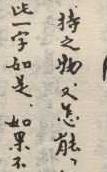 持之物又怎能、
此一字如是、如果不